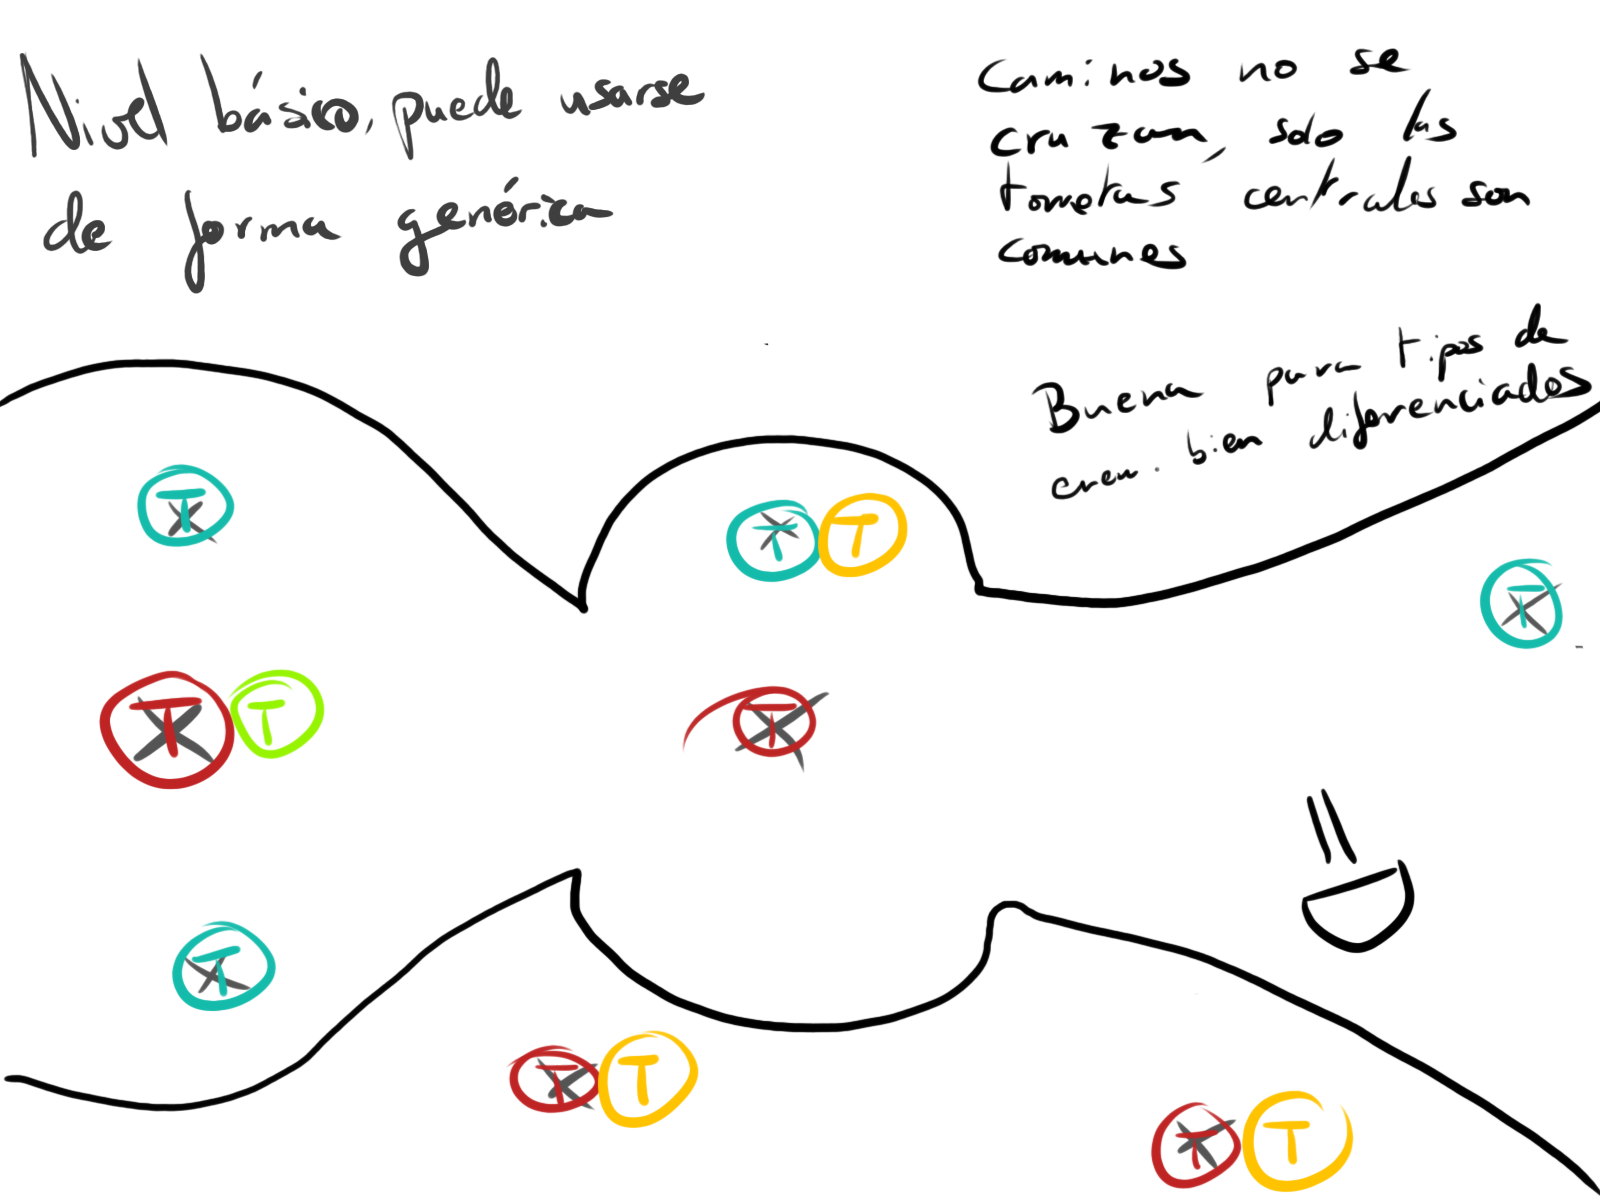 Nivel básico, puede usarse
de forma genérica
Caminos no se
cruzan, solo las
torretas centrales son
comunes
Buena para tipos de
enem. bien diferenciados
T
T T
T
T T
T
T
T T
T T